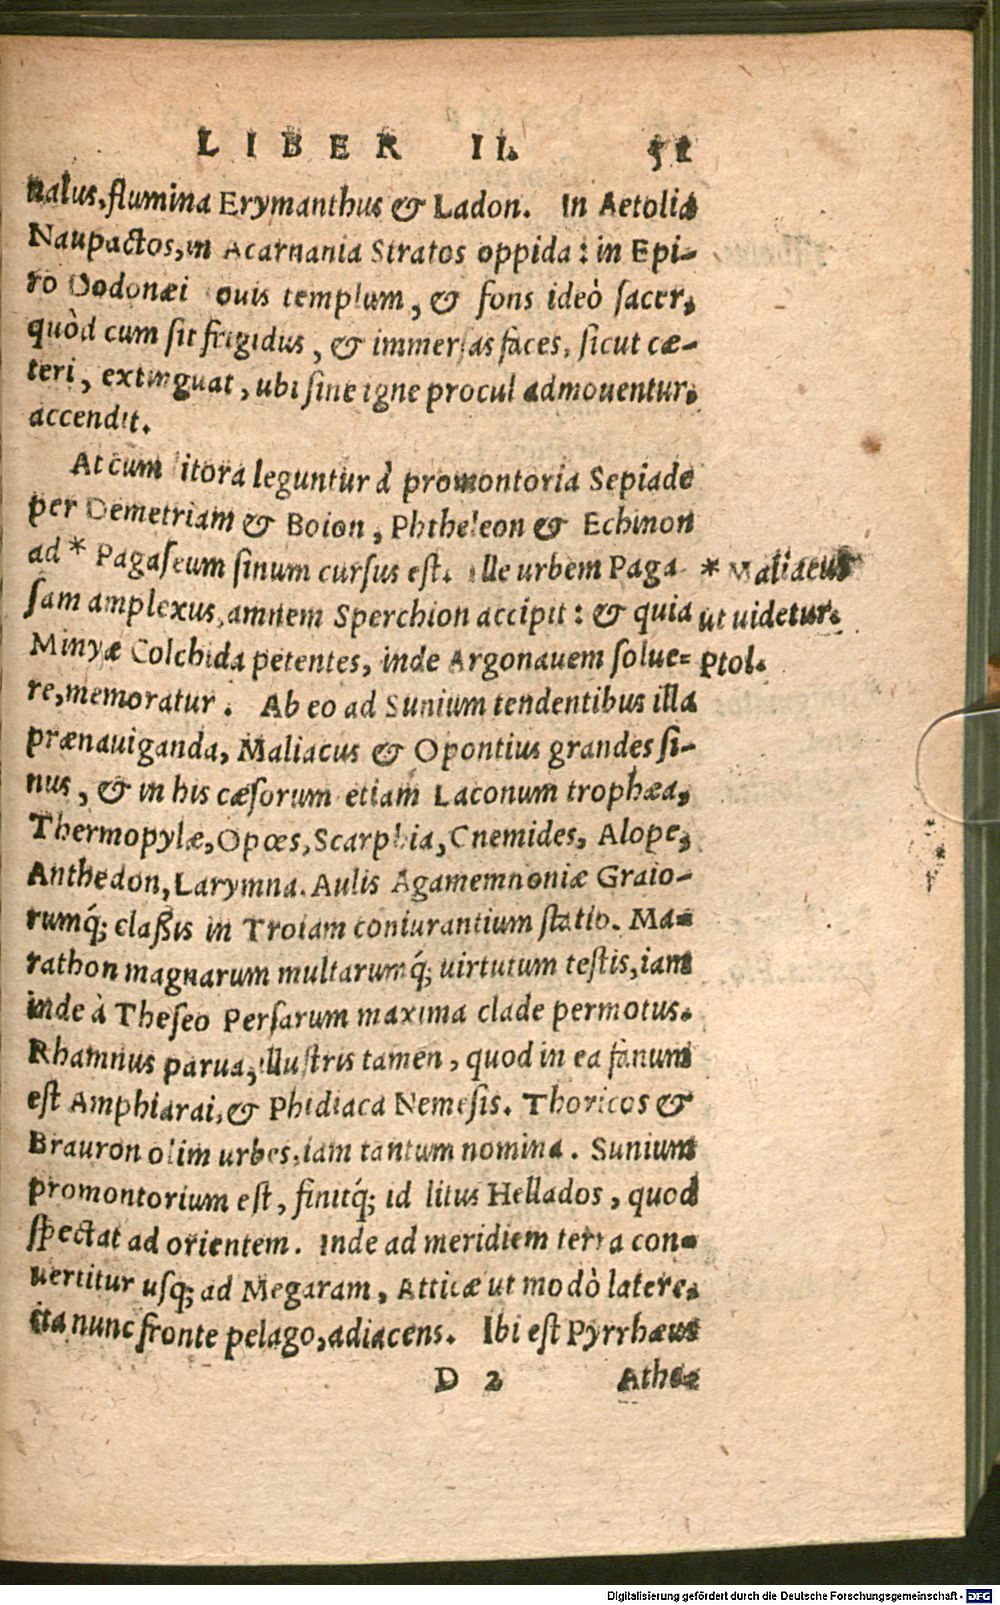 LIBER II. 51
nalus, flumina Erymanthus & Ladon. In Aetolia
Naupactos, in Acarnania Stratos oppida: in Epi-
ro Dodonæi ouis templum, & fons ideò sacer,
quòd cum sit frigidus, & immersas faces, sicut cæ-
teri, extinguat, ubi sine igne procul admouentur,
accendit.
At cum litora leguntur à promontoria Sepiade
per Demetriam & Boion, Phtheleon & Echinon
ad * Pagaseum sinum cursus est. Ille urbem Paga
sam amplexus, amnem Sperchion accipit: & quia
Minyæ Colchida petentes, inde Argonauem solue-
re, memoratur. Ab eo ad Sunium tendentibus illa
prænauiganda, Maliacus & Opontius grandes si-
nus, & in his cæsorum etiam Laconum trophæa,
Thermopylæ, Opoes, Scarphia, Cnemides, Alope,
Anthedon, Larymna. Aulis Agamemnoniæ Graio-
rumq́; claßis in Troiam coniurantium statio. Ma-
rathon magnarum multarumq́; uirtutum testis, iam
inde à Theseo Persarum maxima clade permotus.
Rhamnus parua, illustris tamen, quod in ea fanum
est Amphiarai, & Phidiaca Nemesis. Thoricos &
Brauron olim urbes, iam tantum nomina. Sunium
promontorium est, finitq́; id litus Hellados, quod
spectat ad orientem. Inde ad meridiem terra con-
uertitur usq; ad Megaram, Atticæ ut modò latere,
ita nunc fronte pelago, adiacens. Ibi est Pyrrhæus
D 2 Athe-
* Maliacus
ut uidetur.
Ptol.
Digitalisierung gefördert durch die Deutsche Forschungsgemeinschaft - DFG